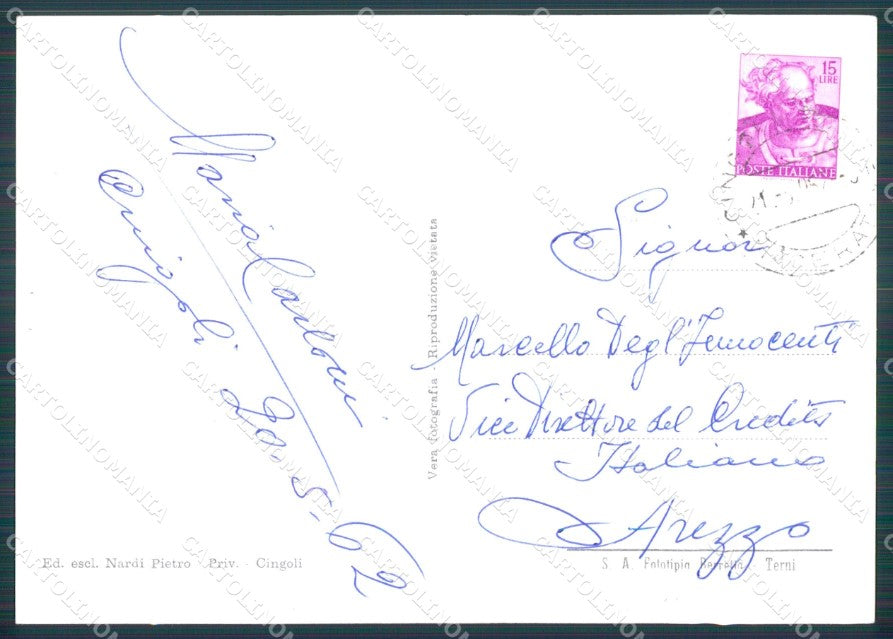 Maria Carloni
Cingoli 20-5-62
Vera fotografia - Riproduzione vietata
Ed. escl. Nardi Pietro - Priv. - Cingoli
15
LIRE
POSTE ITALIANE
Signor
Marcello Degl'Innocenti
Vice Direttore del Credito
Italiano
Arezzo
S. A. Fototipia Berretta - Terni
CARTOLINOMANIA